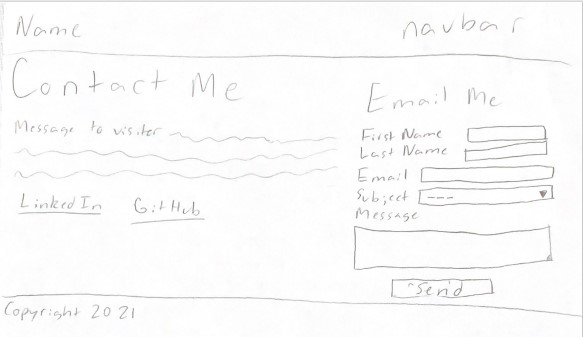 Name
navbar
Contact Me
Message to visiter
LinkedIn
GitHub
Email Me
First Name
Last Name
Email
Subject ---
Message
Send
Copyright 2021